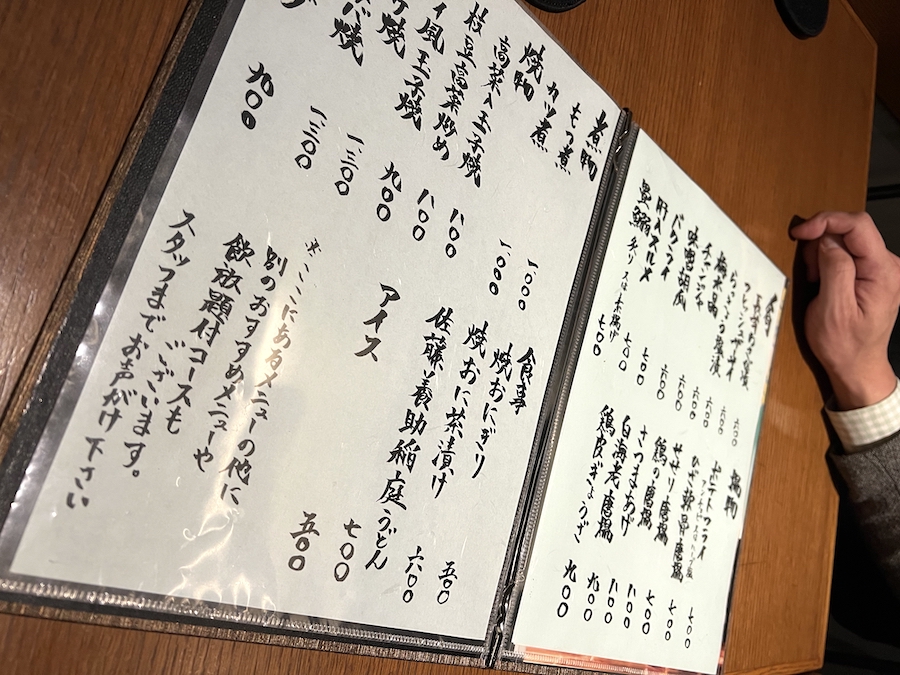 肴
長芋わさび漬 六〇〇
フレッシュザーサイ 六〇〇
らっきょう塩漬 六〇〇
梅水晶 六〇〇
チャンジャ 六〇〇
味噌胡瓜
バクライ 七〇〇
肝〆スルメ 七〇〇
畳鰯 七〇〇
揚物
ポテトフライ 七〇〇
ひざ軟骨唐揚 七〇〇
ササリ唐揚 七〇〇
鶏の唐揚 八〇〇
さつまあげ 八〇〇
白海老唐揚 九〇〇
鶏皮ぎょうざ 九〇〇
煮物
もつ煮 一〇〇〇
カツ煮 一〇〇〇
焼物
高菜入玉子焼 八〇〇
枝豆高菜炒め 八〇〇
イ風玉子焼 九〇〇
焼 一、三〇〇
バ焼 一、三〇〇
九〇〇
食事
焼おにぎり 五〇〇
焼おに茶漬け 六〇〇
佐藤養助稲庭うどん 七〇〇
アイス 五〇〇
※ここにあるメニューの他に
別のおすすめメニューや
飲放題付コースも
ございます。
スタッフまでお声がけ下さい